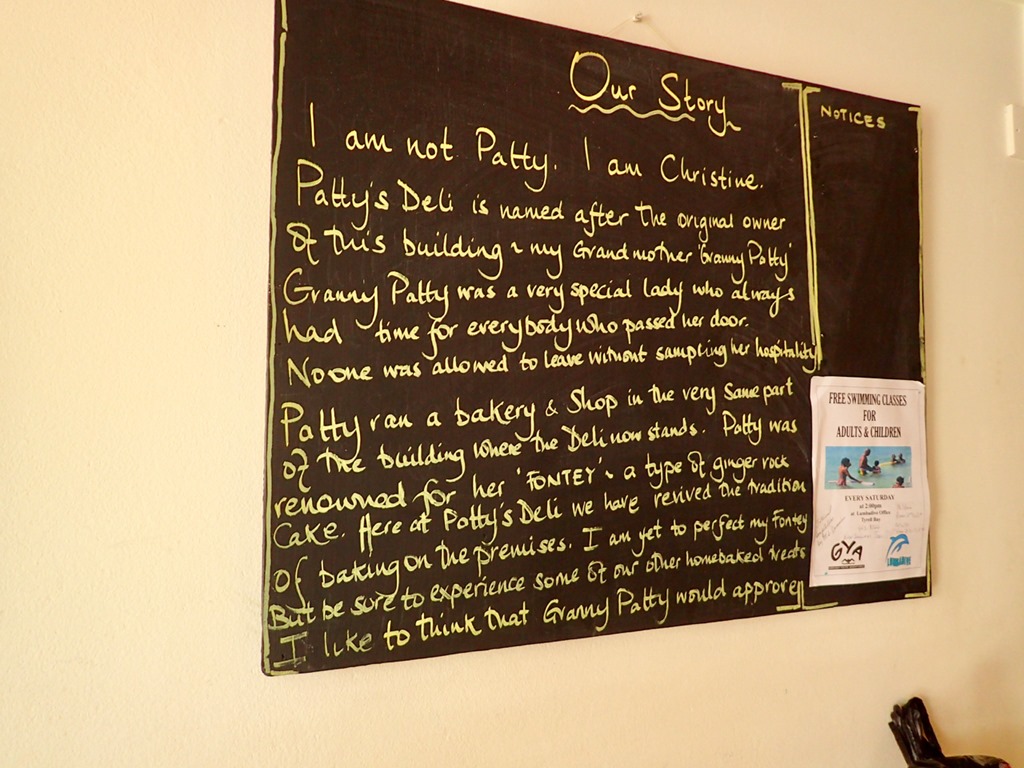 Our Story
I am not Patty. I am Christine.
Patty's Deli is named after the original owner
of this building ~ my Grandmother 'Granny Patty'
Granny Patty was a very special lady who always
had time for everybody who passed her door.
No one was allowed to leave without sampling her hospitality
Patty ran a bakery & Shop in the very same part
of the building where the Deli now stands. Patty was
renowned for her 'FONTEY' ~ a type of ginger rock
Cake. Here at Patty's Deli we have revived the tradition
of baking on the premises. I am yet to perfect my Fontey
But be sure to experience some of our other homebaked treats
I like to think that Granny Patty would approve
NOTICES
FREE SWIMMING CLASSES
FOR
ADULTS & CHILDREN
EVERY SATURDAY
at 2:00pm
at Lumbadive Office
Tyrell Bay
GYA